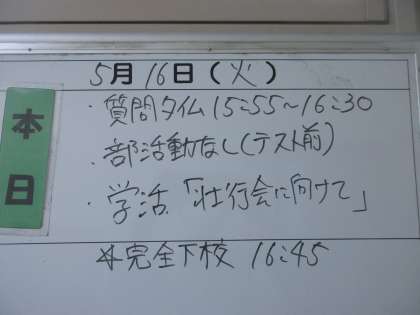 5月16日(火)
本日
・質問タイム 15:55~16:30
・部活動なし(テスト前)
・学活「壮行会に向けて」
※完全下校 16:45